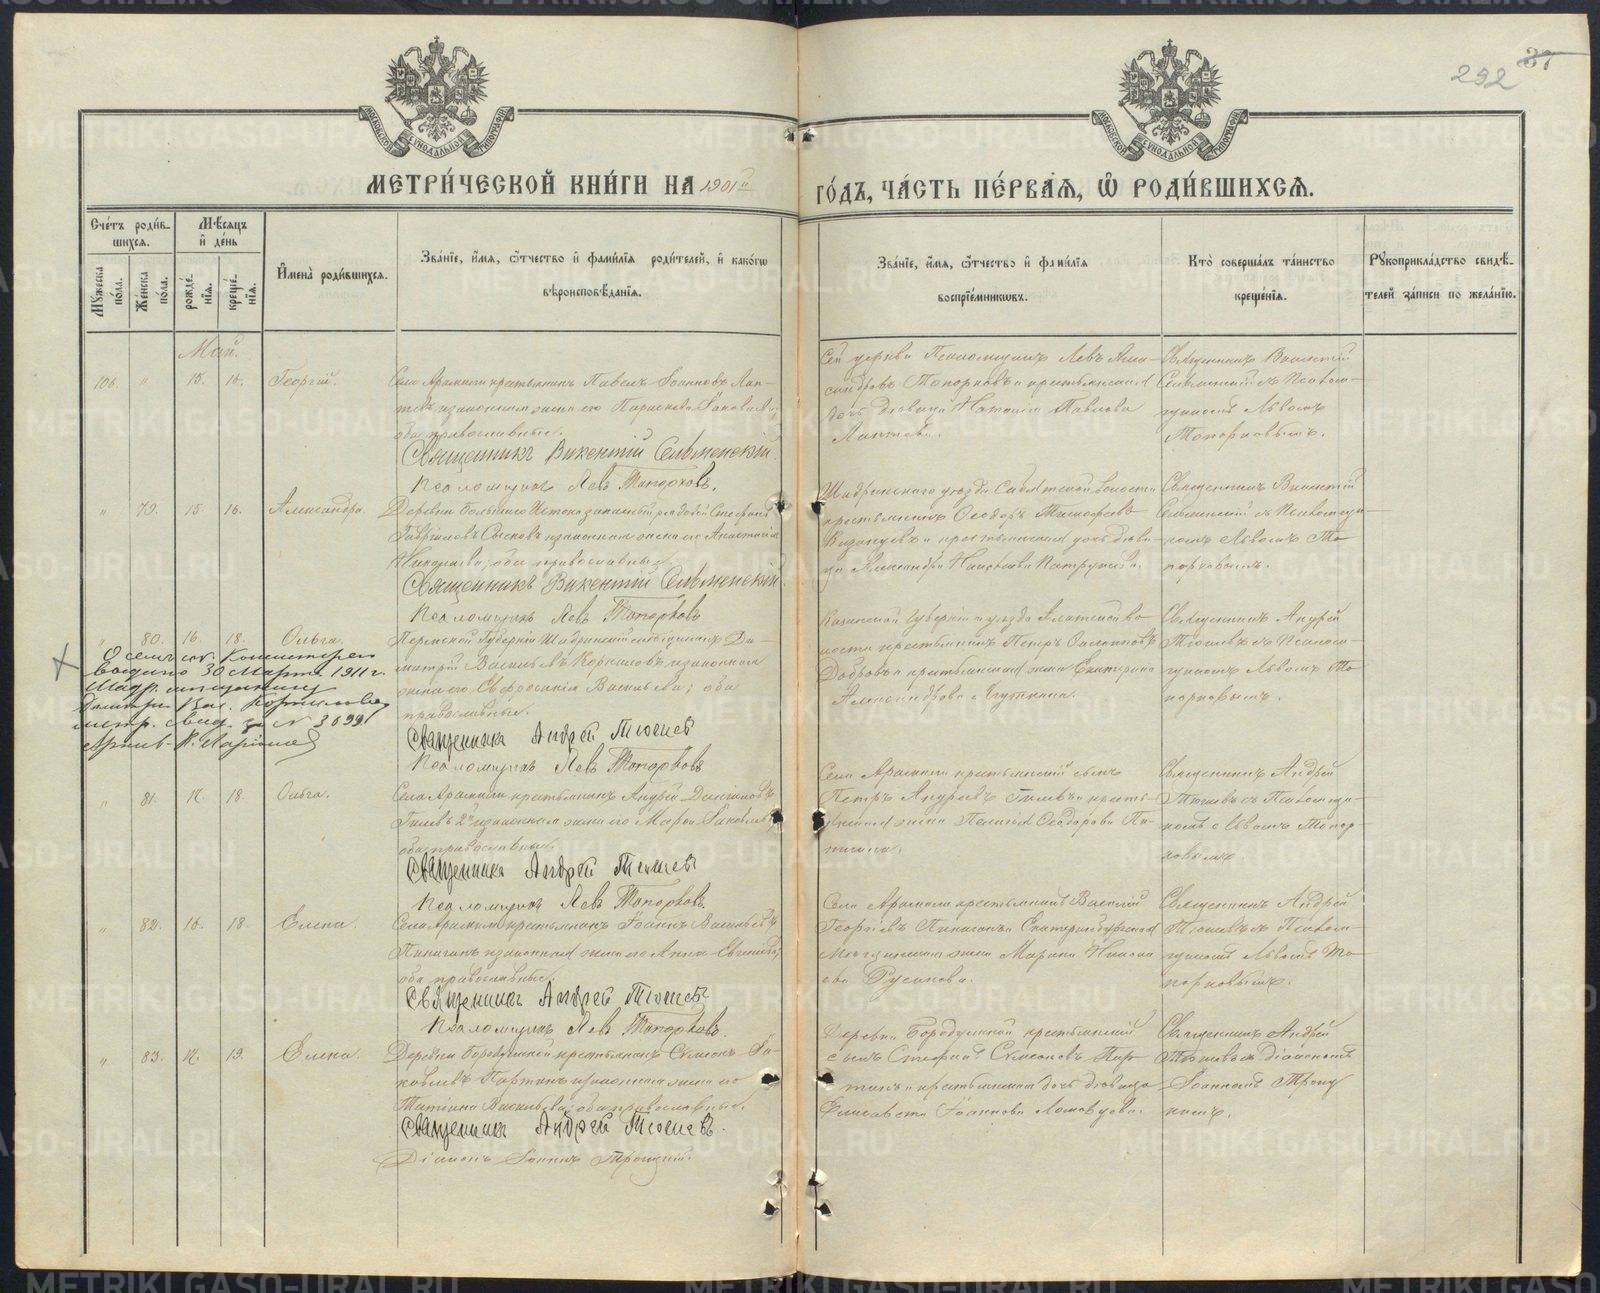 292 37
МЕТРИЧЕСКОЙ КНИГИ НА 1901й ГОДЪ, ЧАСТЬ ПЕРВАЯ, Ѿ РОДИВШИХСЯ.
Счетъ родившихся.
Мужеска пола.
Женска пола.
Мѣсяцъ и день
рожденія.
крещенія.
Имена родившихся.
Званіе, имя, ѿчество и фамилія родителей, и какогѡ вѣроисповѣданія.
Званіе, имя, ѿчество и фамилія воспріемникѡвъ.
Кто совершалъ таинство крещенія.
Рукоприкладство свидѣтелей записи по желанію.
Май.
106. " 15. 16. Георгій.
Села Арамили крестьянинъ Павелъ Іоанновъ Лап-
тевъ и законная жена его Параскева Іаковлева,
оба православные.
Священникъ Викентій Сельменскій
Псаломщикъ Левъ Топорковъ.
Сей церкви Псаломщикъ Левъ Алек-
сандровъ Топорковъ и крестьянская
дочь дѣвица Наталія Павлова
Лаптева.
Священникъ Викентій
Сельменскій съ Псалом-
щикомъ Львомъ
Топорковымъ.
" 79. 15. 16. Александра.
Деревни Большаго Истока запасный рядовой Стефанъ
Гавріиловъ Сысковъ и законная жена его Анастасія
Николаева; оба православные.
Священникъ Викентій Сельменскій
Псаломщикъ Левъ Топорковъ
Шадринскаго уѣзда волости
крестьянинъ Ѳеодоръ Тимофеевъ
Казанцевъ и крестьянская дочь дѣви-
ца Александра Патрушева.
Священникъ Викентій
Сельменскій съ Псаломщи-
комъ Львомъ То-
порковымъ.
" 80. 16. 18. Ольга.
О семъ изъ Консисторіи
выдано 30 Марта 1911 г.
Шадр. мѣщанину
Димитрію Вас. Корнилову
метр. свид. за № 3699
Архив.
Пермской Губерніи Шадринскій мѣщанинъ Ди-
митрій Васильевъ Корниловъ и законная
жена его Евфросинія Васильева; оба
православные.
Священникъ Андрей Тюшевъ
Псаломщикъ Левъ Топорковъ
Казанской Губерніи и уѣзда Алатской во-
лости крестьянинъ Петръ
Добровъ и крестьянская жена Екатерина
Александрова
Священникъ Андрей
Тюшевъ съ Псалом-
щикомъ Львомъ То-
порковымъ.
" 81. 17. 18. Ольга.
Села Арамили крестьянинъ Андрей
Гилевъ 2й и законная жена его Марѳа Іаковлева,
оба православные.
Священникъ Андрей Тюшевъ
Псаломщикъ Левъ Топорковъ.
Села Арамили крестьянскій сынъ
Петръ Андреевъ Гилевъ и кресть-
янская жена Пелагія Ѳеодорова Пи-
Священникъ Андрей
Тюшевъ съ Псаломщи-
комъ Львомъ Топор-
ковымъ.
" 82. 16. 18. Елена.
Села Арамили крестьянинъ Іоаннъ Васильевъ
и законная жена его Анна
оба православные.
Священникъ Андрей Тюшевъ
Псаломщикъ Левъ Топорковъ.
Села Арамили крестьянинъ Василій
Георгіевъ и Екатеринбургская
мѣщанская жена Марина Никола-
ева Русинова.
Священникъ Андрей
Тюшевъ съ Псалом-
щикомъ Львомъ То-
порковымъ.
" 83. 17. 19. Елена.
Деревни Бородулиной крестьянинъ Сѵмеонъ Іа-
ковлевъ Паргинъ и законная жена его
Татіана Васильева; оба православные.
Священникъ Андрей Тюшевъ.
Діаконъ Іоаннъ Троицкій.
Деревни Бородулиной крестьянскій
сынъ Стефанъ Сѵмеоновъ Пар-
гинъ и крестьянская дочь дѣвица
Елисавета Іоаннова Ломовцева.
Священникъ Андрей
Тюшевъ съ Діакономъ
Іоанномъ Троиц-
кимъ.